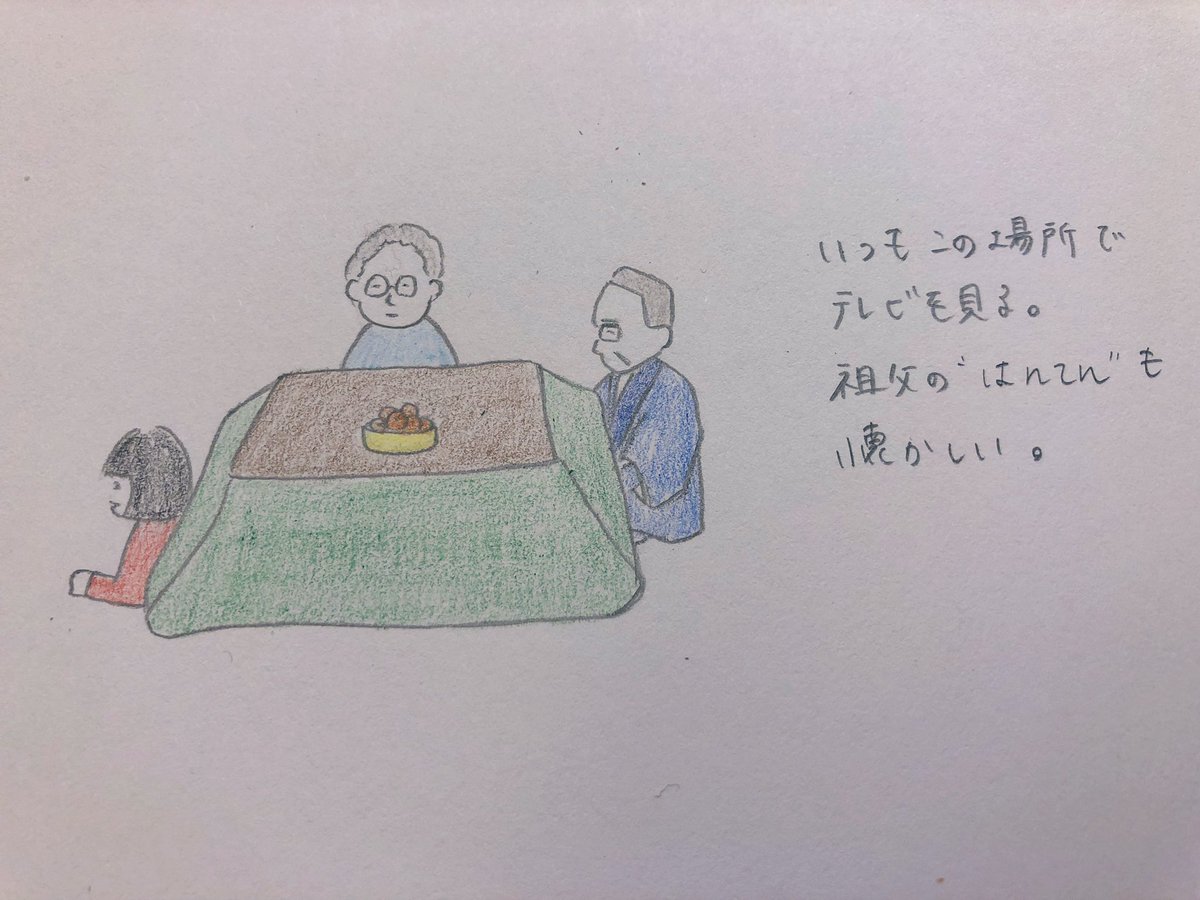 いつもこの場所で
テレビを見る。
祖父の"はんてん"も
懐かしい。